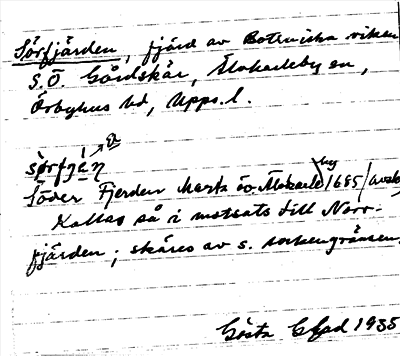 Sörfjärden, fjärd av Botniska viken
S.Ö. Gårdskär, Älvkarleby sn,
Örbyhus hd, Upps. l.
sørfjạ́ṇ
Söder Fjerden Karta öv. Älvkarleby 1685 /
Kallas så i motsats till Norr-
fjärden; skäres av s. sockengränsen.
Gösta 1935